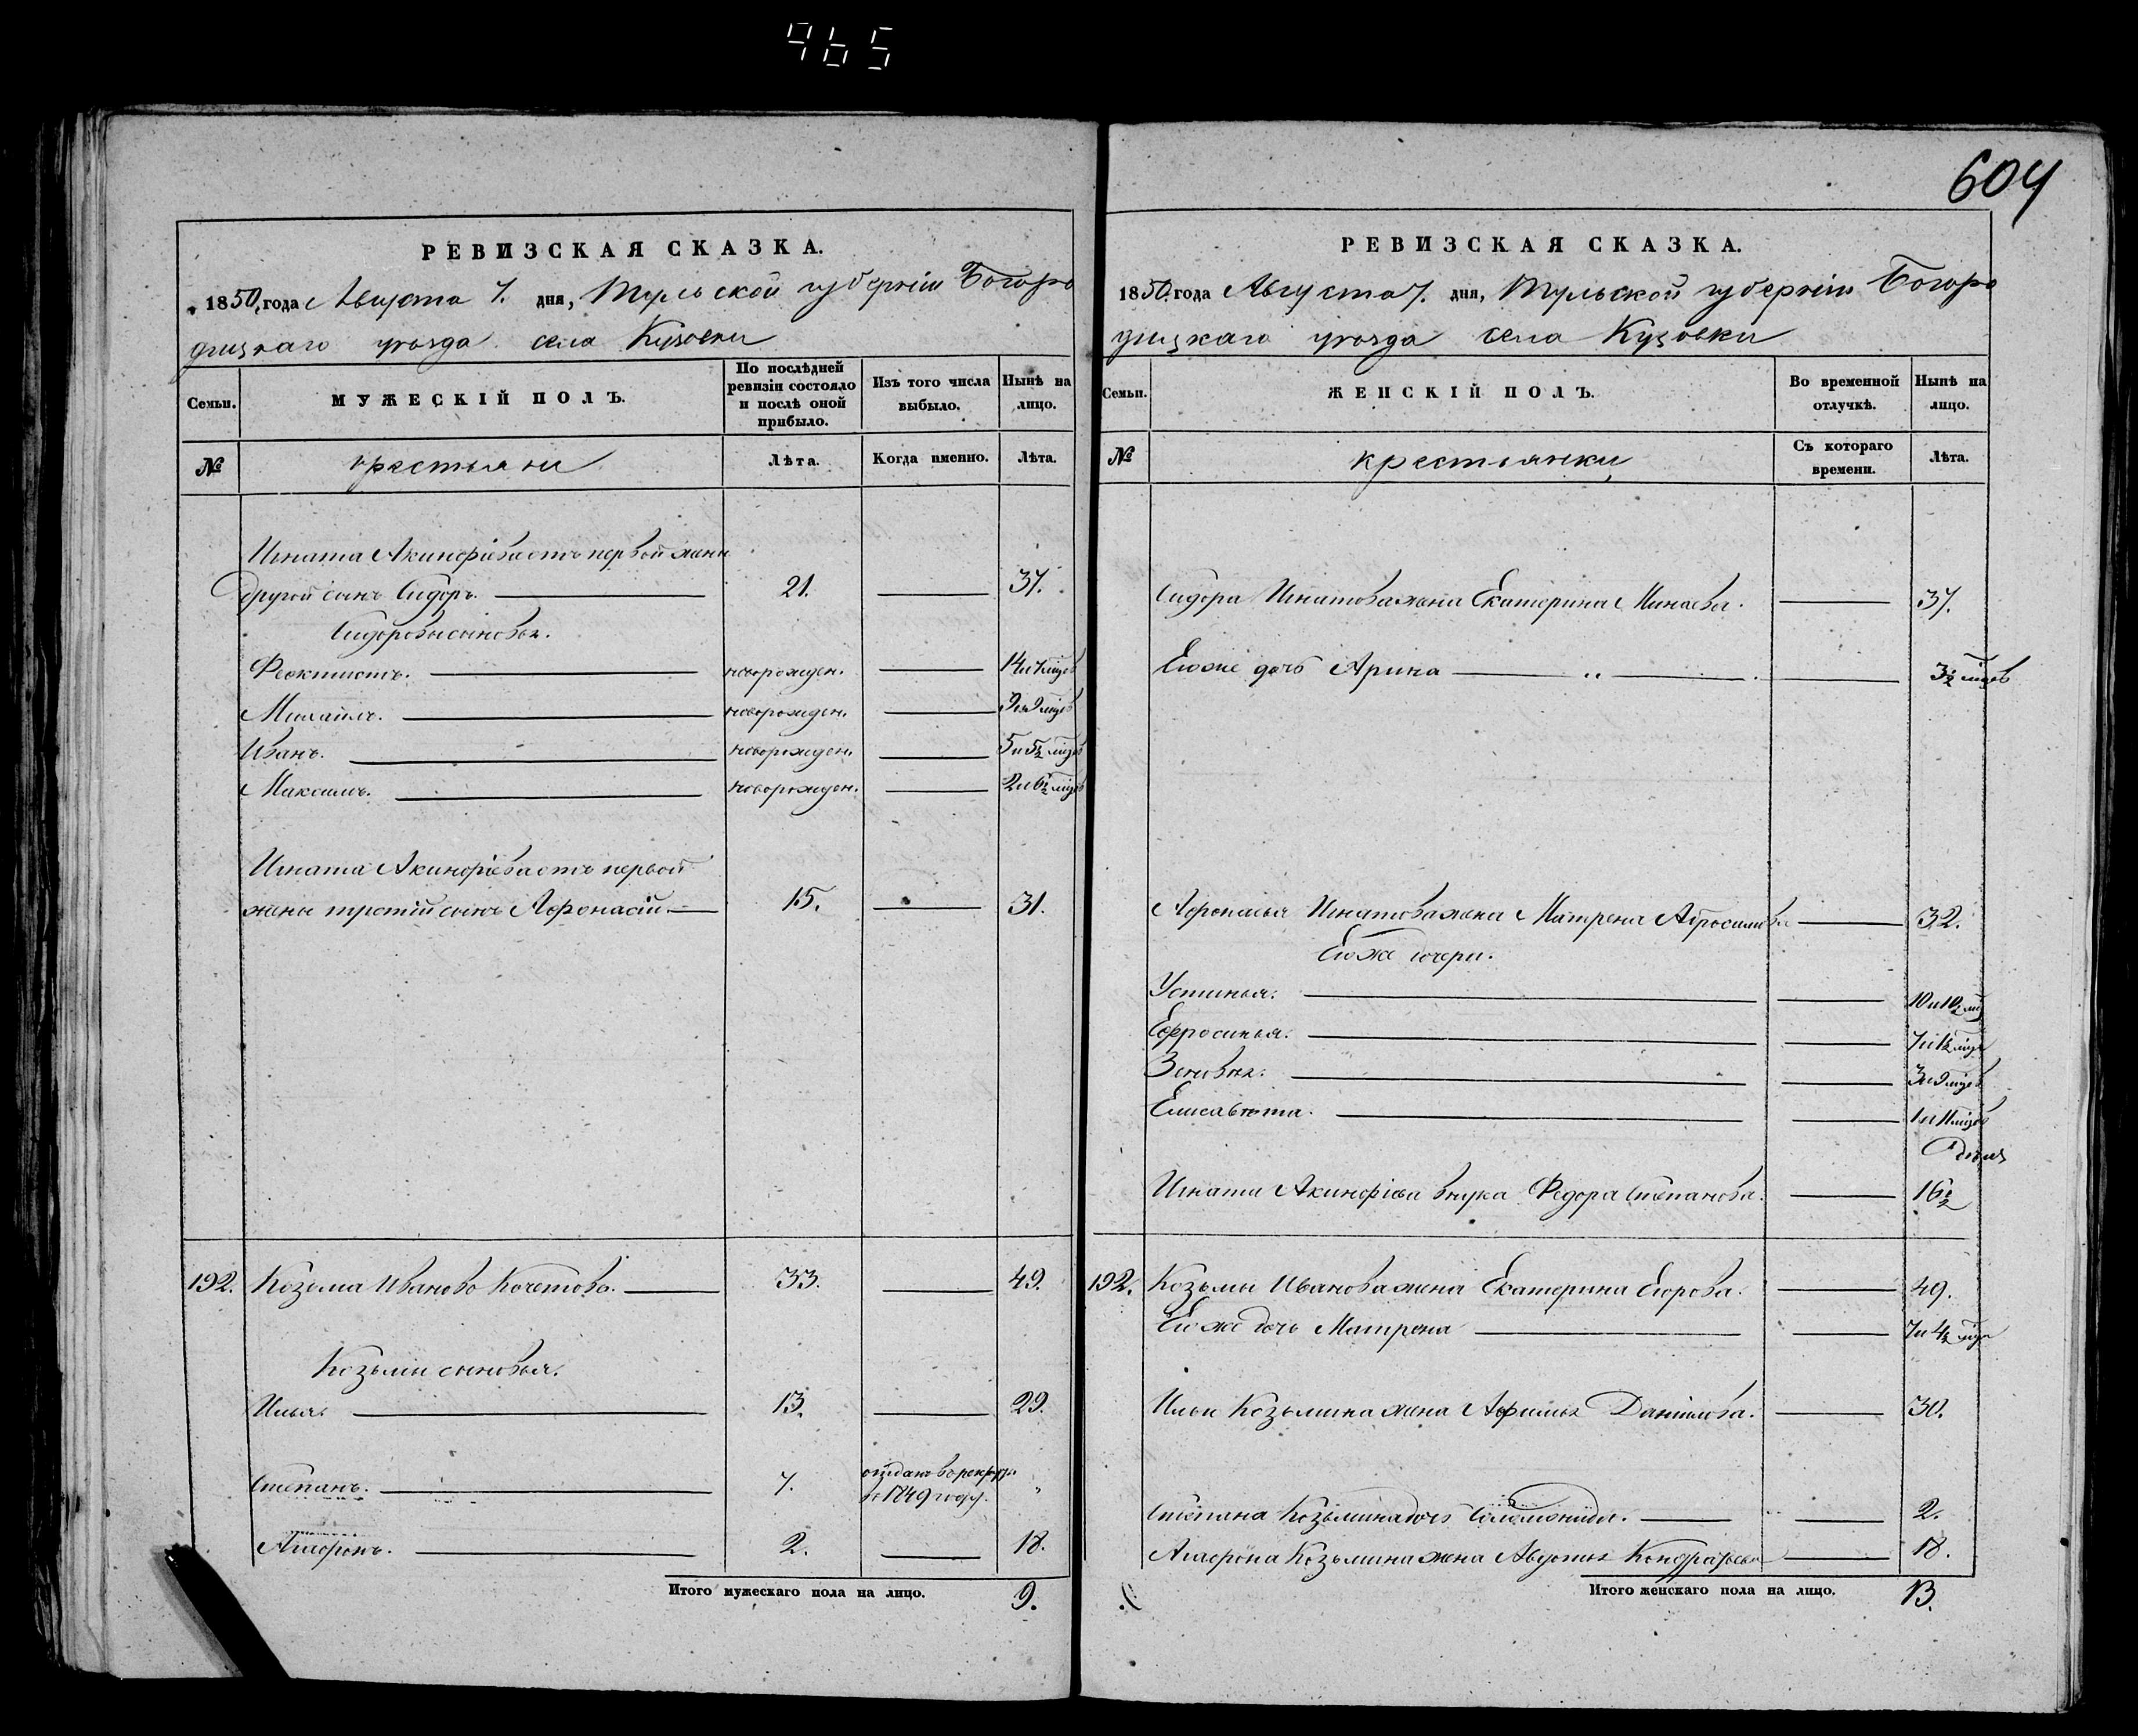 465
604
РЕВИЗСКАЯ СКАЗКА.
1850 года Августа 7. дня, Тульской губерніи Богоро
дицкаго уѣзда села Кузовки
Семьи.
МУЖЕСКІЙ ПОЛЪ.
По послѣдней ревизіи состояло и послѣ оной прибыло.
Изъ того числа выбыло.
Нынѣ на лицо.
№
крестьяни
Лѣта.
Когда именно.
Лѣта.
Игната Акинфіева отъ первой жены
другой сынъ Сидоръ. 21. 37.
Сидоровы сыновья.
Феоктистъ. новорожден. 14 и 7 мцев
Михайлъ. новорожден. 9 и 9 мцев
Иванъ. новорожден. 5 и 5½ мцев
Максимъ. новорожден. 2 и 6½ мцев
Игната Акинфіева отъ первой
жены третій сынъ Афонасій. 15. 31.
192. Козьма Ивановъ Кочетовъ. 33. 49.
Козьмы сыновья.
Илья. 13. 29.
Степанъ. 7. отданъ в рекруты
в 1849 году. "
Агафонъ. 2. 18.
Итого мужескаго пола на лицо. 9.
РЕВИЗСКАЯ СКАЗКА.
1850 года Августа 7. дня, Тульской губерніи Богоро
дицкаго уѣзда села Кузовки
Семьи.
ЖЕНСКІЙ ПОЛЪ.
Во временной отлучкѣ.
Нынѣ на лицо.
№
крестьянки
Съ котораго времени.
Лѣта.
Сидора Игнатова жена Екатерина Минаева. 37.
Его же дочь Арина 3½ мцев
Афонасья Игнатова жена Матрена Абросимова 32.
Его же дочери.
Устинья. 10 и 10½ мц
Ефросинья. 7 и 1½ мцъ
Зиновья. 3 и 9 мцев
Елисавета. 1 и 11 мцев
Игната Акинфіева внука Федора Степанова. 16½
192. Козьмы Иванова жена Екатерина Егорова. 49.
Его же дочь Матрена 7 и 4½ мцъ
Ильи Козьмина жена Афимья Данилова. 30.
Степана Козьмина дочь Соломонида. 2.
Агафона Козьмина жена Авдотья Кондратьева 18.
Итого женскаго пола на лицо. 13.